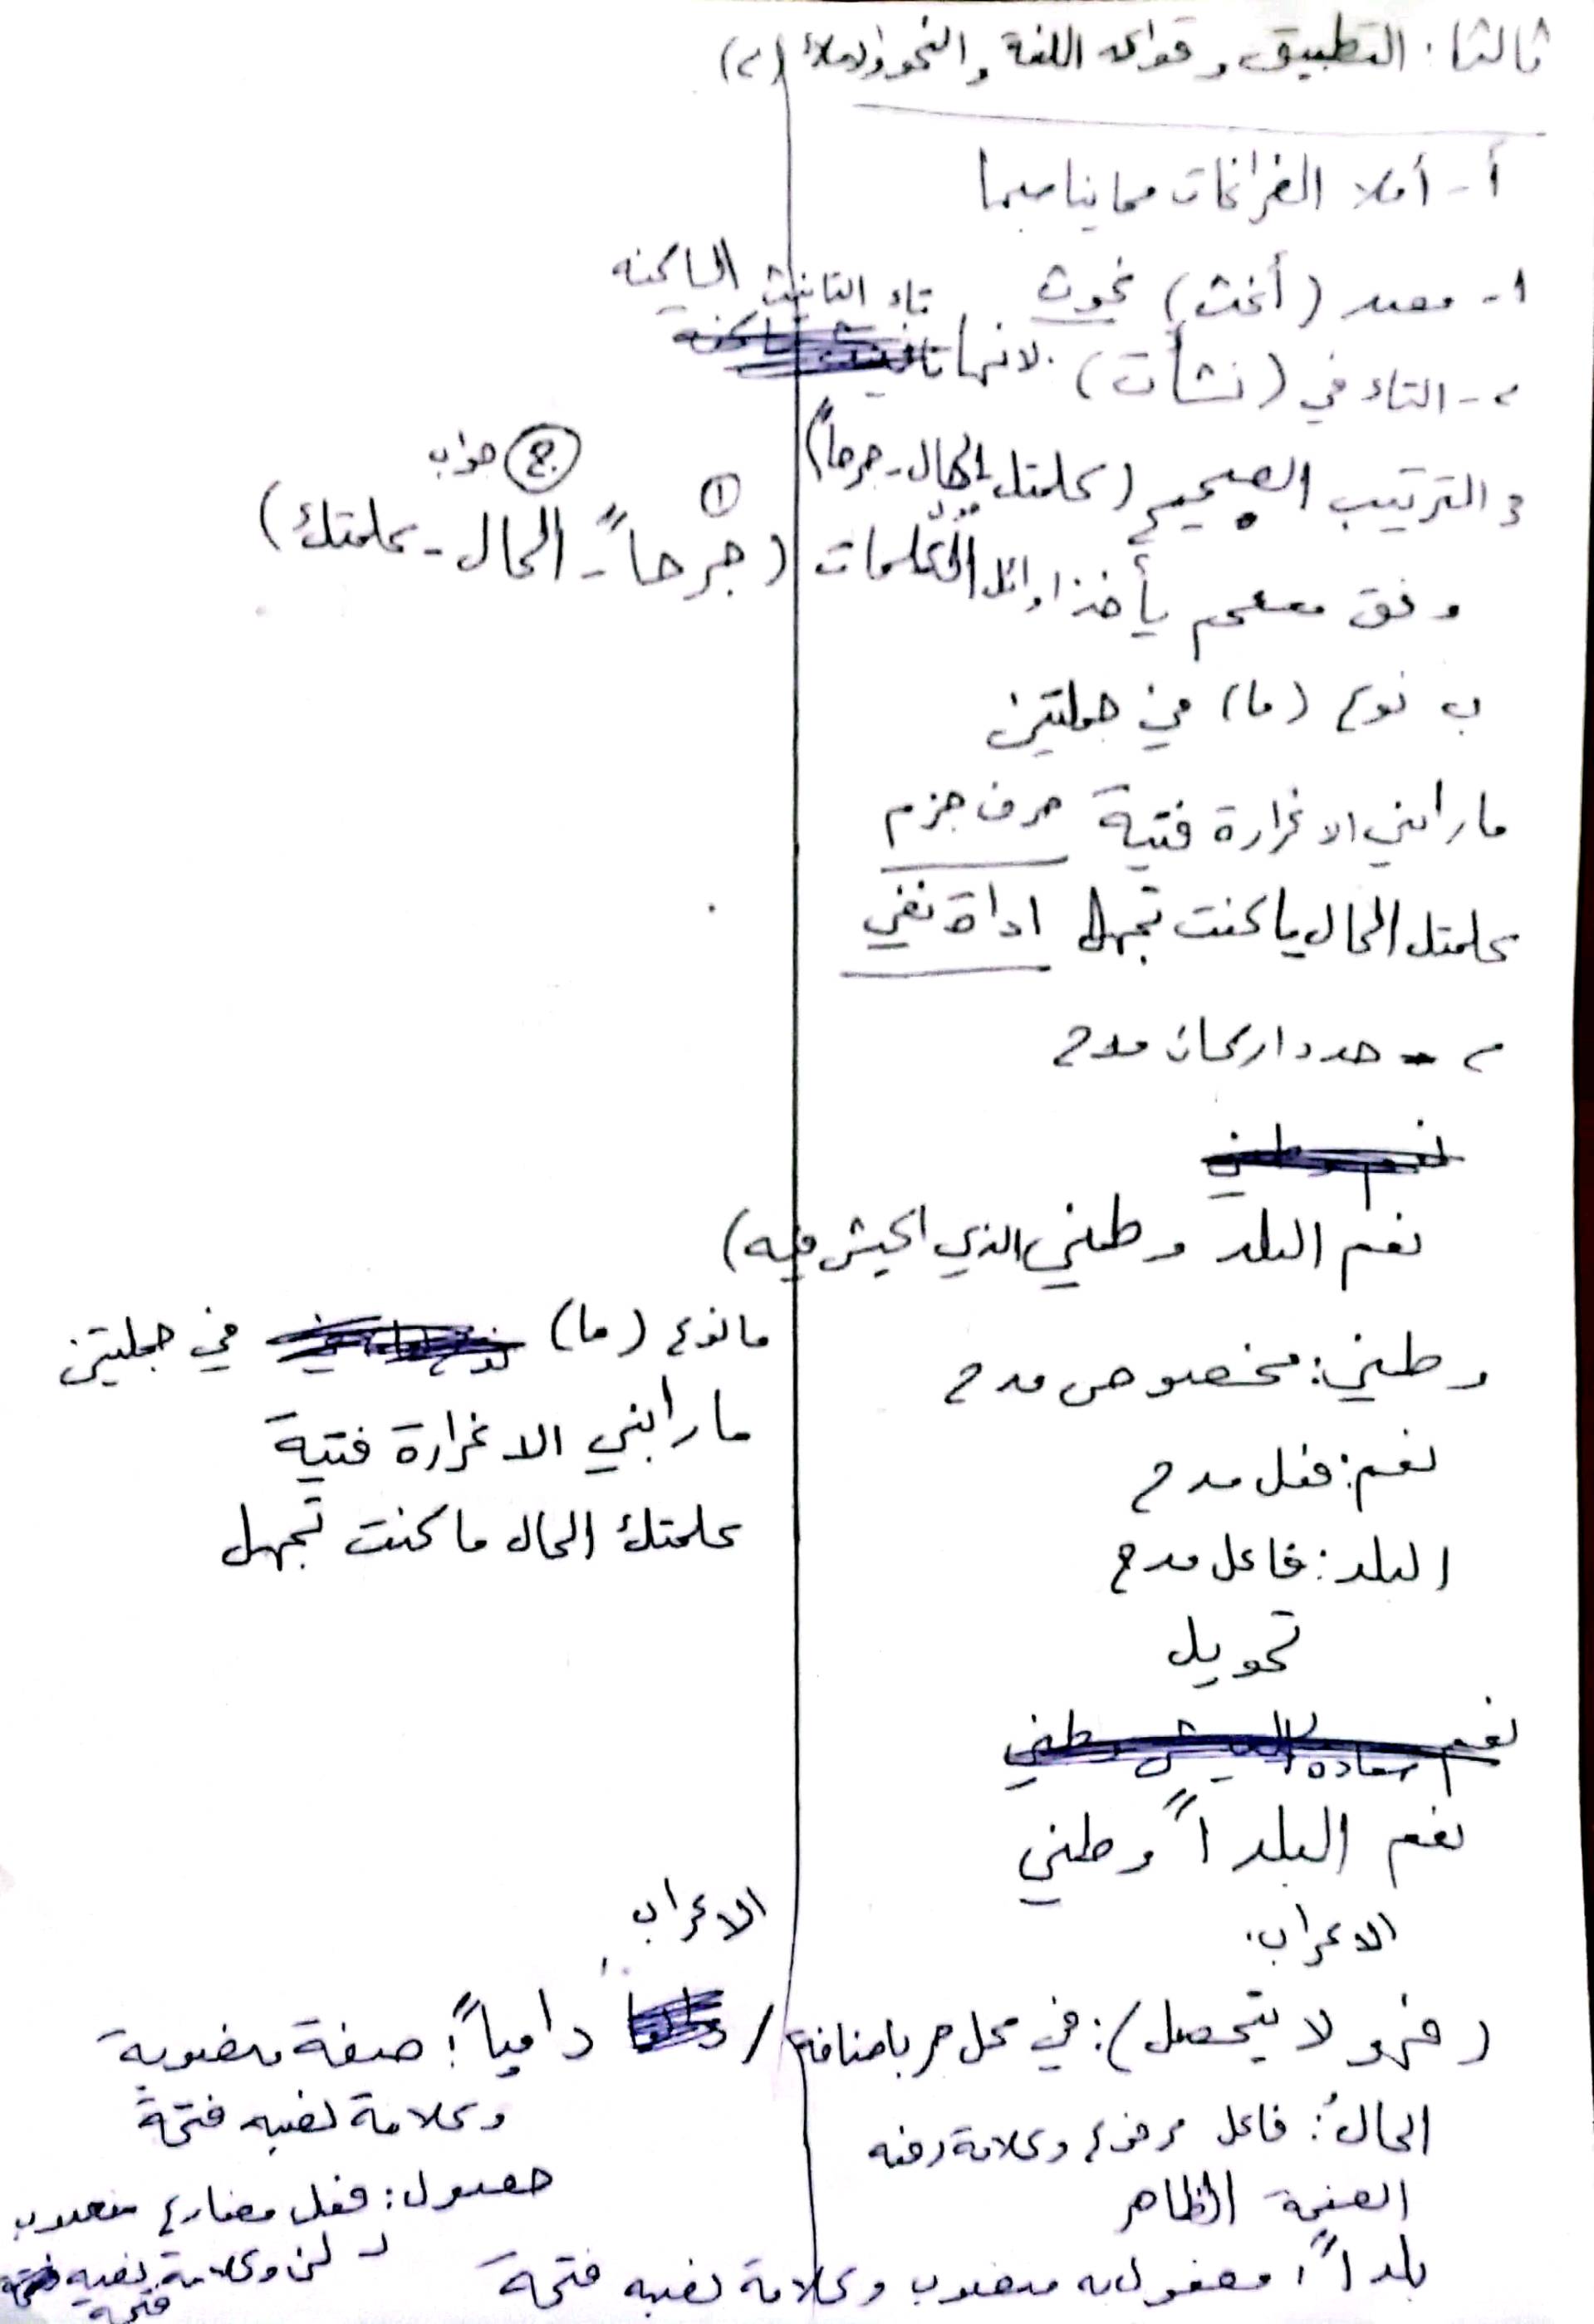 ثالثا: التطبيق وقواعد اللغة والنحو والاملاء (٢)
أ - أملا الفراغات مما يناسبها
١- مصدر (أخت) تاء التانيث الساكنه
٢- التاء في (نشأت) لانها
٣ الترتيب الصحيح (علمتك - الحال - جرحاً)
وفق معجم يأخذ اوائل الكلمات (جرحاً - الحال - علمتك)
① ② جواب
ب نوع (ما) في جملتين
ما رابني الا غرارة فتية حرف جزم
علمتك الحال ما كنت تجهل اداة نفي
٢ - حدد اركان مدح
نعم البلد وطني الذي اعيش فيه)
وطني: مخصوص مدح
نعم: فعل مدح
البلد: فاعل مدح
تحويل
نعم البلد اً وطني
ما نوع (ما) في جملتين
ما رابني الا غرارة فتية
علمتك الحال ما كنت تجهل
الاعراب
(فهو لا يتحصل): في محل جر باضافة /
الحالُ: فاعل مرفوع وعلامة رفعه
الضمة الظاهر
بلداً: مفعول به منصوب وعلامة نصبه فتحة
الاعراب
دامياً: صفة منصوبة
وعلامة نصبه فتحة
فعل مضارع منصوب
لـ لن وعلامة نصبه
فتحة